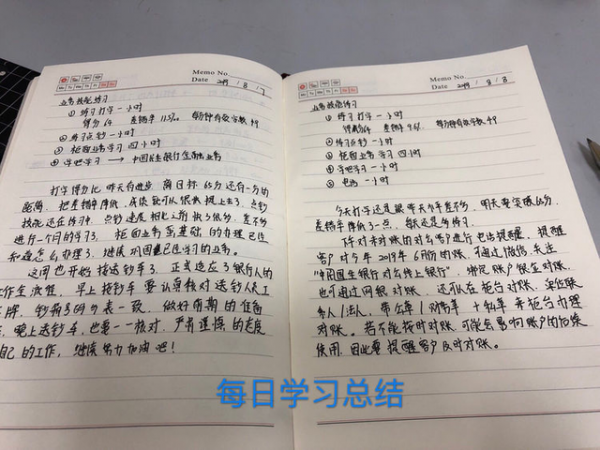 Memo No.
Date 2019 / 8 / 7
业务技能练习
① 练习打字一小时
得分64 差错率11.5% 每分钟有效字数49
② 练习点钞一小时
③ 柜面业务学习四小时
④ 学吧学习 → 中国民生银行金融业务
打字得分比昨天有进步，离目标65分还有一分的
距离，把差错率降低，成绩就可以很快提上去了。点钞
技能还在练习中，点钞速度相比之前快了很多，差不多
进行一个月的学习，柜面业务基础的办理已经
知道怎么办理了，继续巩固已经学习的业务。
这周也开始接送钞车了，正式适应了银行人的
工作全流程，早上接钞车要认真核对送钞人员工
牌，钞箱号码的一致，做好前期的准备
，晚上送钞车，也要一一核对，严肃谨慎的态度
自己的工作，继续努力加油吧！
Memo No.
Date 2019 / 8 / 8
业务技能练习
① 练习打字一小时
得分64 差错率9.6% 每分钟有效字数49
② 练习点钞一小时
③ 柜面业务学习四小时
④ 学吧学习一小时
⑤ 电话一小时
今天打字还是跟昨天水平差不多，明天要突破65分，
差错率降低了一点，每天还是多练习。
下午对未对账的对公客户进行电话提醒，提醒
客户对今年2019年6月份的账，可通过微信，关注
“中国民生银行对公线上银行”，绑定账户银企对账，
也可通过网银对账，还可以在柜台对账，
务人/法人，带公章/财务章+私章来柜台办理
对账。若不能按时对账，可能会影响账户的后续
使用，因此要提醒客户及时对账。
每日学习总结